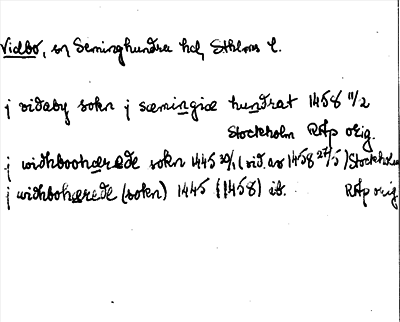 Vidbo, sn Seminghundra hd, Sthlms l.
j vidaby sokn j sæmingiæ hundrat 1458 11/2
Stockholm RAp orig.
j widhboohærede sokn 1445 30/1 (vid. av 1458 27/5) Stockholm
j widhbohærede (sokn) 1445 (1458) ib. RAp orig.